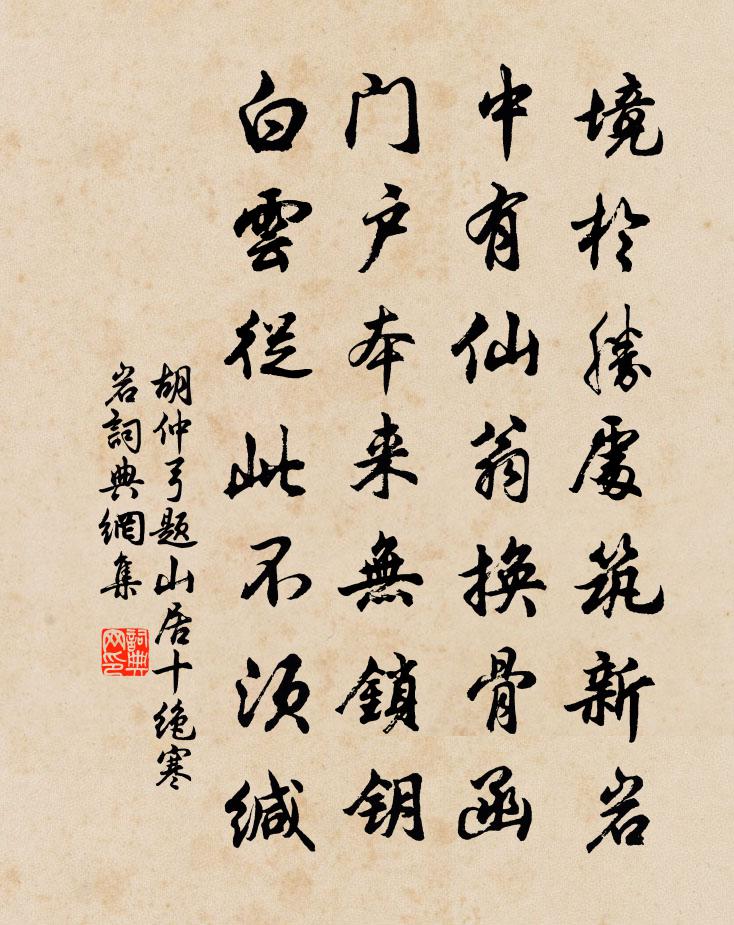 境於勝處筑新岩
中有仙翁換骨函
门户本来無鎖钥
白雲從此不须缄
胡仲弓题山居十绝寒
岩詞典網集
詞典网印